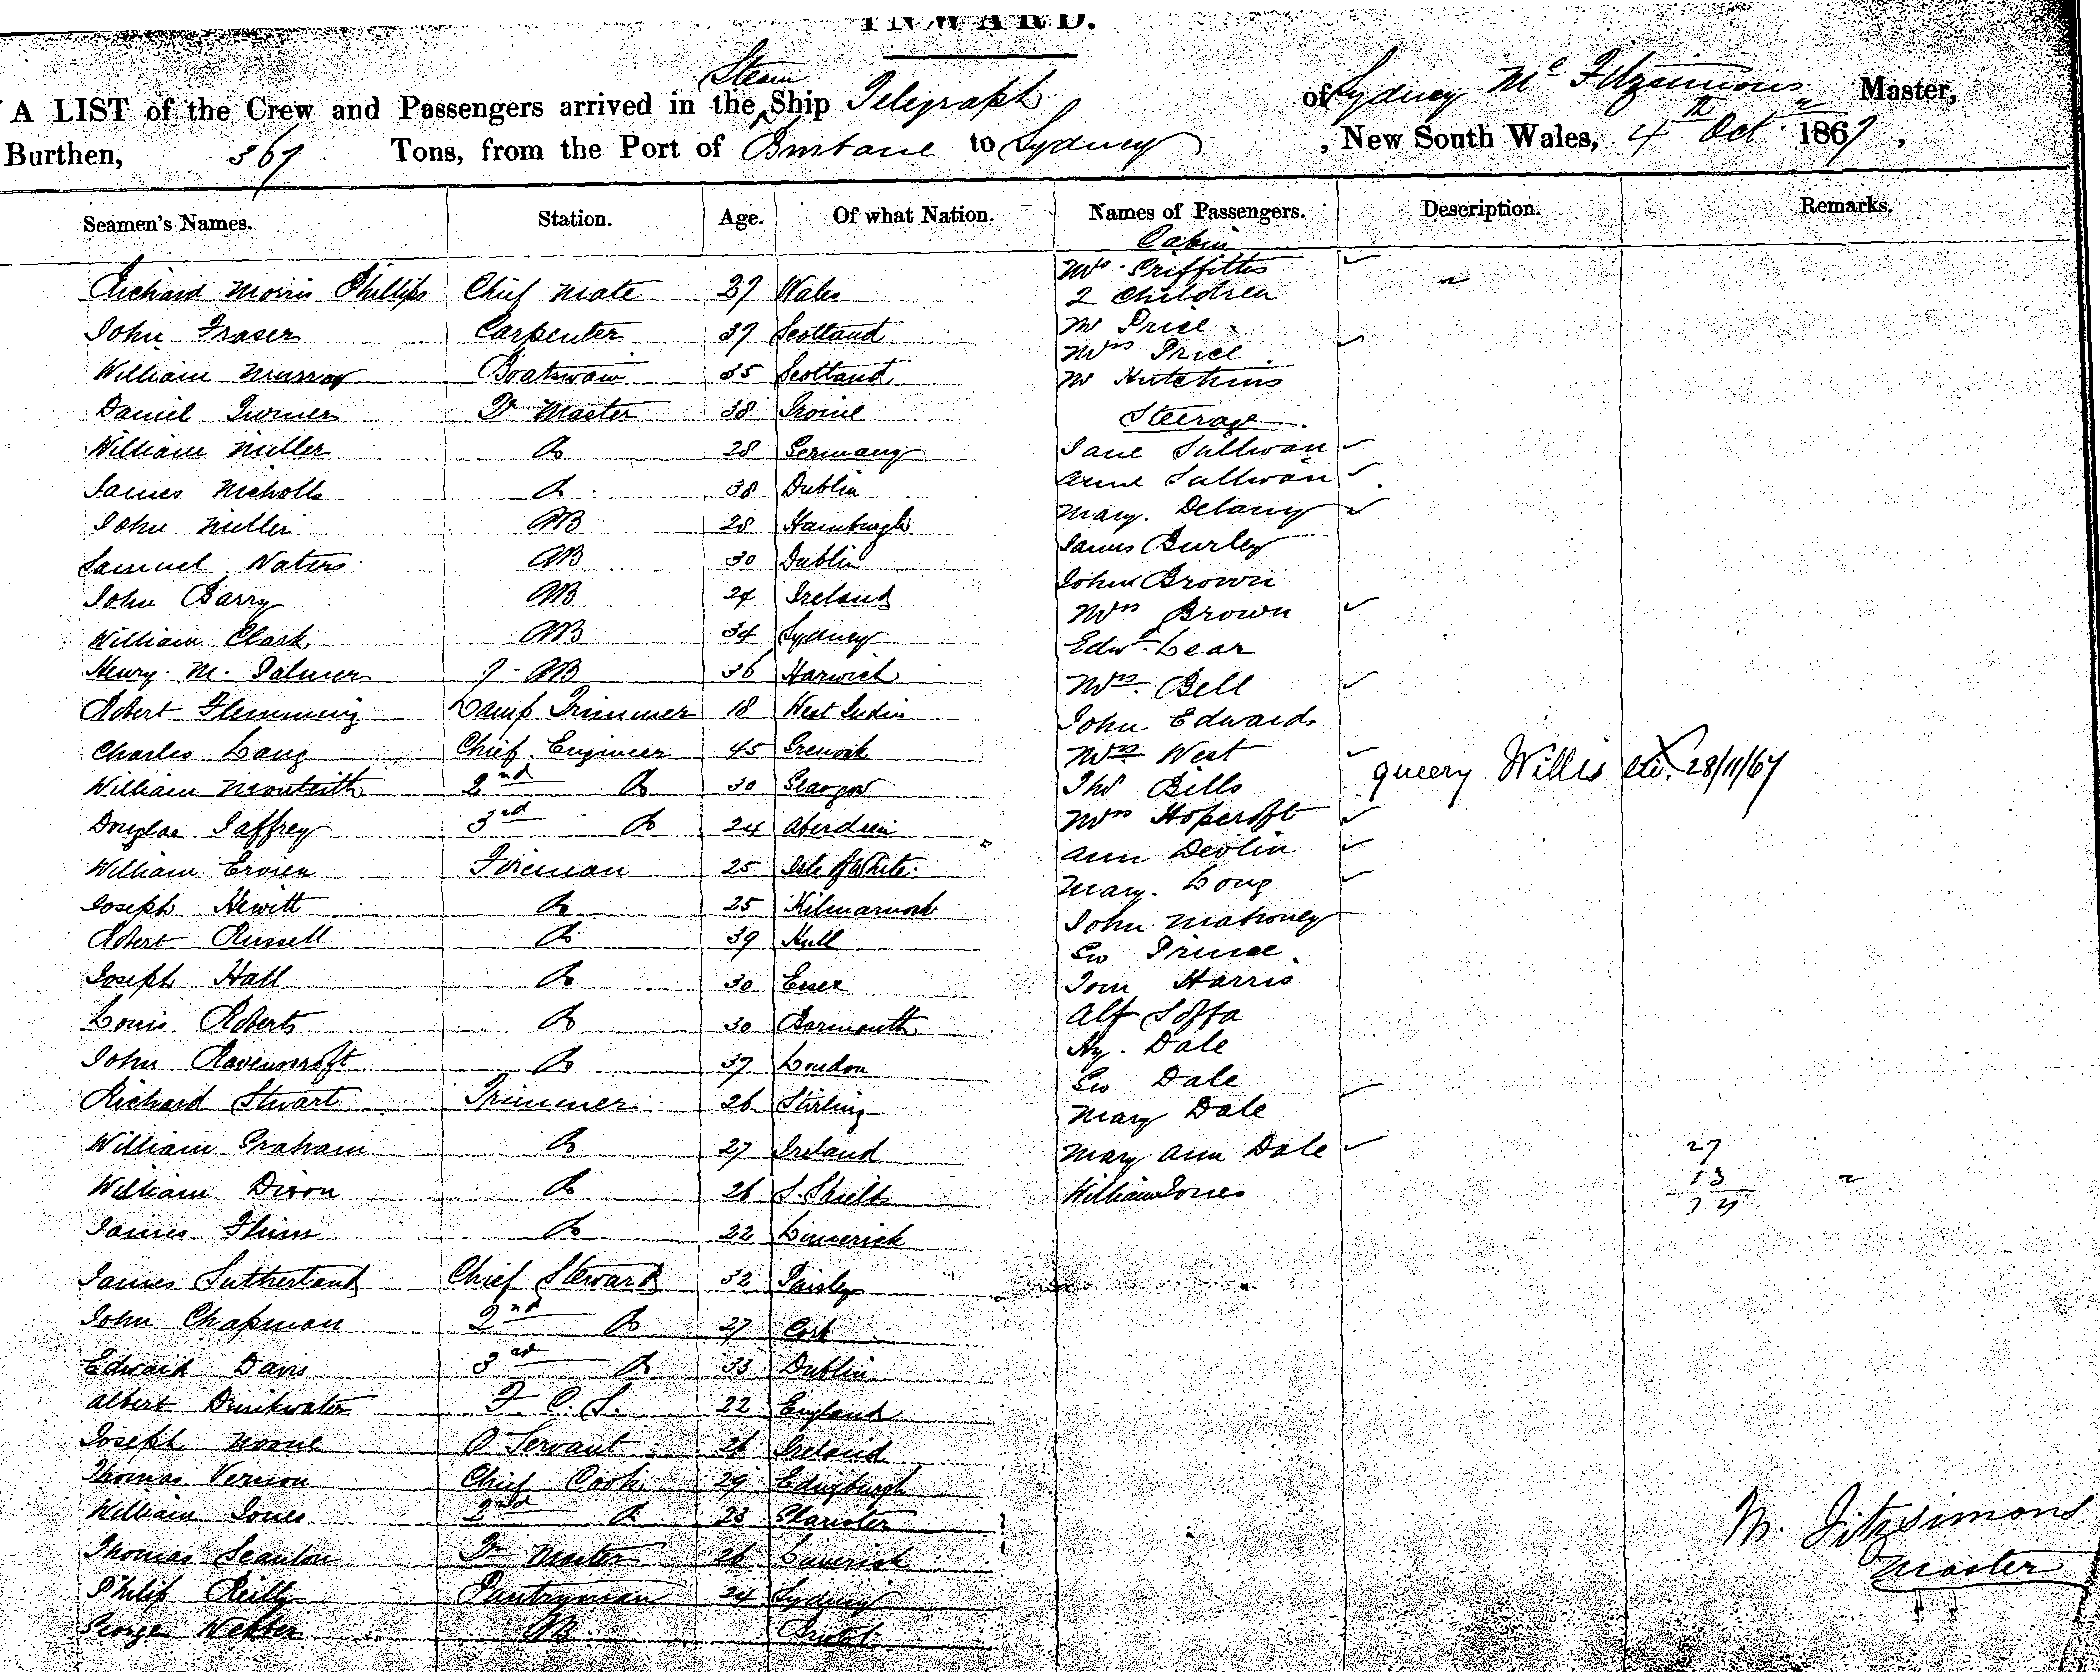 INWARD.
A LIST of the Crew and Passengers arrived in the Steam Ship Telegraph of Sydney Mc Fitzsimons Master,
Burthen, 367 Tons, from the Port of Brisbane to Sydney, New South Wales, 4th Oct 1867,
Seamen's Names. Station. Age. Of what Nation. Names of Passengers. Description. Remarks.
Cabin
Richard Morris Phillips Chief Mate 27 Wales Mrs Griffiths
2 Children
John Fraser Carpenter 37 Scotland Mr Price
Mrs Price
William Murray Boatswain 35 Scotland Mr Hutchins
Daniel Turner Master 38 Steerage
William Miller Do 28 Germany Jane Sullivan
James Nicholls Do 38 Dublin Anne Sullivan
John Miller AB 28 Hamburgh Mary Delany
Samuel Waters AB 30 Dublin James Burley
John Barry AB 24 Ireland John Brown
William Clark AB 34 Sydney Mrs Brown
Henry M. Palmer AB 36 Harwich Edwd Lear
Robert Flemming Lamp Trimmer 18 West Indies Mrs Bell
John Edwards
Charles Lang Chief Engineer 45 Grenock Mrs West
William Monteith 2nd Do 30 Glasgow Thos Bills queery Willis 28/11/67
Douglas Jaffrey 3rd Do 24 Aberdeen Mrs Hopcroft
William Ervien Fireman 25 Isle of White Ann Devlin
Joseph Hewitt Do 25 Kilmarnock Mary Long
Robert Russell Do 39 Hull John Mahoney
Geo Prince
Joseph Hall Do 30 Essex Tom Harris
Louis Roberts Do 30 Barmouth Alf Joffa
John Ravenscroft Do 37 London Hy. Dale
Geo Dale
Richard Stuart Trimmer 26 Stirling Mary Dale
William Graham Do 27 Ireland Mary Ann Dale 27
William Dixon Do 26 S. Shields William Jones 13
James Flinn Do 22 Limerick
James Sutherland Chief Steward 32 Paisley
John Chapman 2nd Do 27 Cork
Edward Davis 3rd Do 33 Dublin
Albert Drinkwater F. C. S. 22 England
Joseph Servant 26 Ireland
Thomas Vernon Chief Cook 29 Edinburgh
William Jones 2nd Do 23
Thomas Scanlon Master 26 Limerick
Philip Reilly Pantryman 24 Sydney
George Webber AB Bristol
M. Fitzsimons
Master